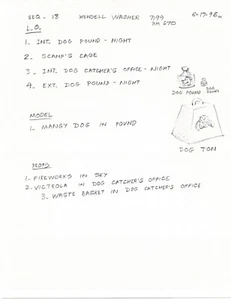 SEQ. 18 KENDELL WAGNER 7199 6-17-98
RM 570
L.O.
1. INT. DOG POUND - NIGHT
2. SCAMP'S CAGE
3. INT. DOG CATCHER'S OFFICE - NIGHT
4. EXT. DOG POUND - NIGHT
DOG POUND
DOG POUND
DOG TON
MODEL
1. MANGY DOG IN POUND
MOPO
1. FIREWORKS IN SKY
2. VICTROLA IN DOG CATCHER'S OFFICE
3. WASTE BASKET IN DOG CATCHER'S OFFICE